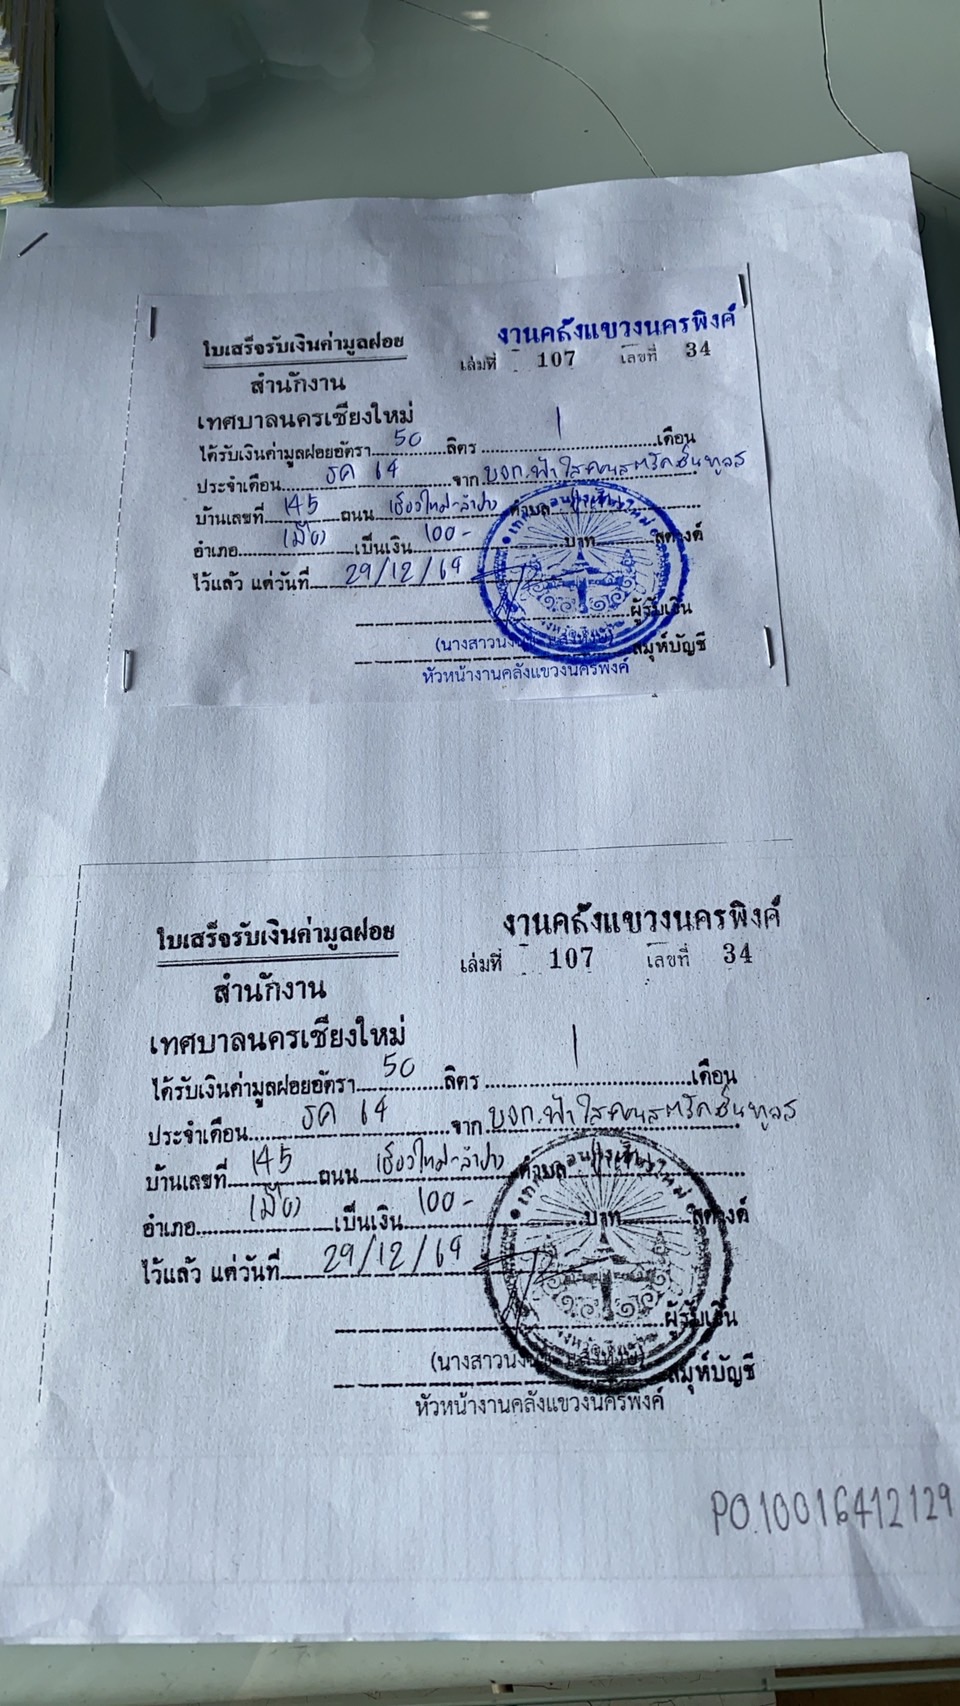 ใบเสร็จรับเงินค่ามูลฝอย
งานคลังแขวงนครพิงค์
เล่มที่ 107 เลขที่ 34
สำนักงาน
เทศบาลนครเชียงใหม่
ได้รับเงินค่ามูลฝอยอัตรา 50 ลิตร 1 เดือน
ประจำเดือน ธค 64 จาก บจก.ฟ้าใสคอนสตรัคชั่นทูลส์
บ้านเลขที่ 145 ถนน เชียงใหม่-ลำปาง ตำบล
อำเภอ เมือง เป็นเงิน 100- บาท สตางค์
ไว้แล้ว แต่วันที่ 29/12/64
ผู้รับเงิน
(นางสาว
สมุห์บัญชี
หัวหน้างานคลังแขวงนครพิงค์
ใบเสร็จรับเงินค่ามูลฝอย
งานคลังแขวงนครพิงค์
เล่มที่ 107 เลขที่ 34
สำนักงาน
เทศบาลนครเชียงใหม่
ได้รับเงินค่ามูลฝอยอัตรา 50 ลิตร 1 เดือน
ประจำเดือน ธค 64 จาก บจก.ฟ้าใสคอนสตรัคชั่นทูลส์
บ้านเลขที่ 145 ถนน เชียงใหม่-ลำปาง ตำบล
อำเภอ เมือง เป็นเงิน 100- บาท สตางค์
ไว้แล้ว แต่วันที่ 29/12/64
ผู้รับเงิน
(นางสาว
สมุห์บัญชี
หัวหน้างานคลังแขวงนครพิงค์
PO.10016412129